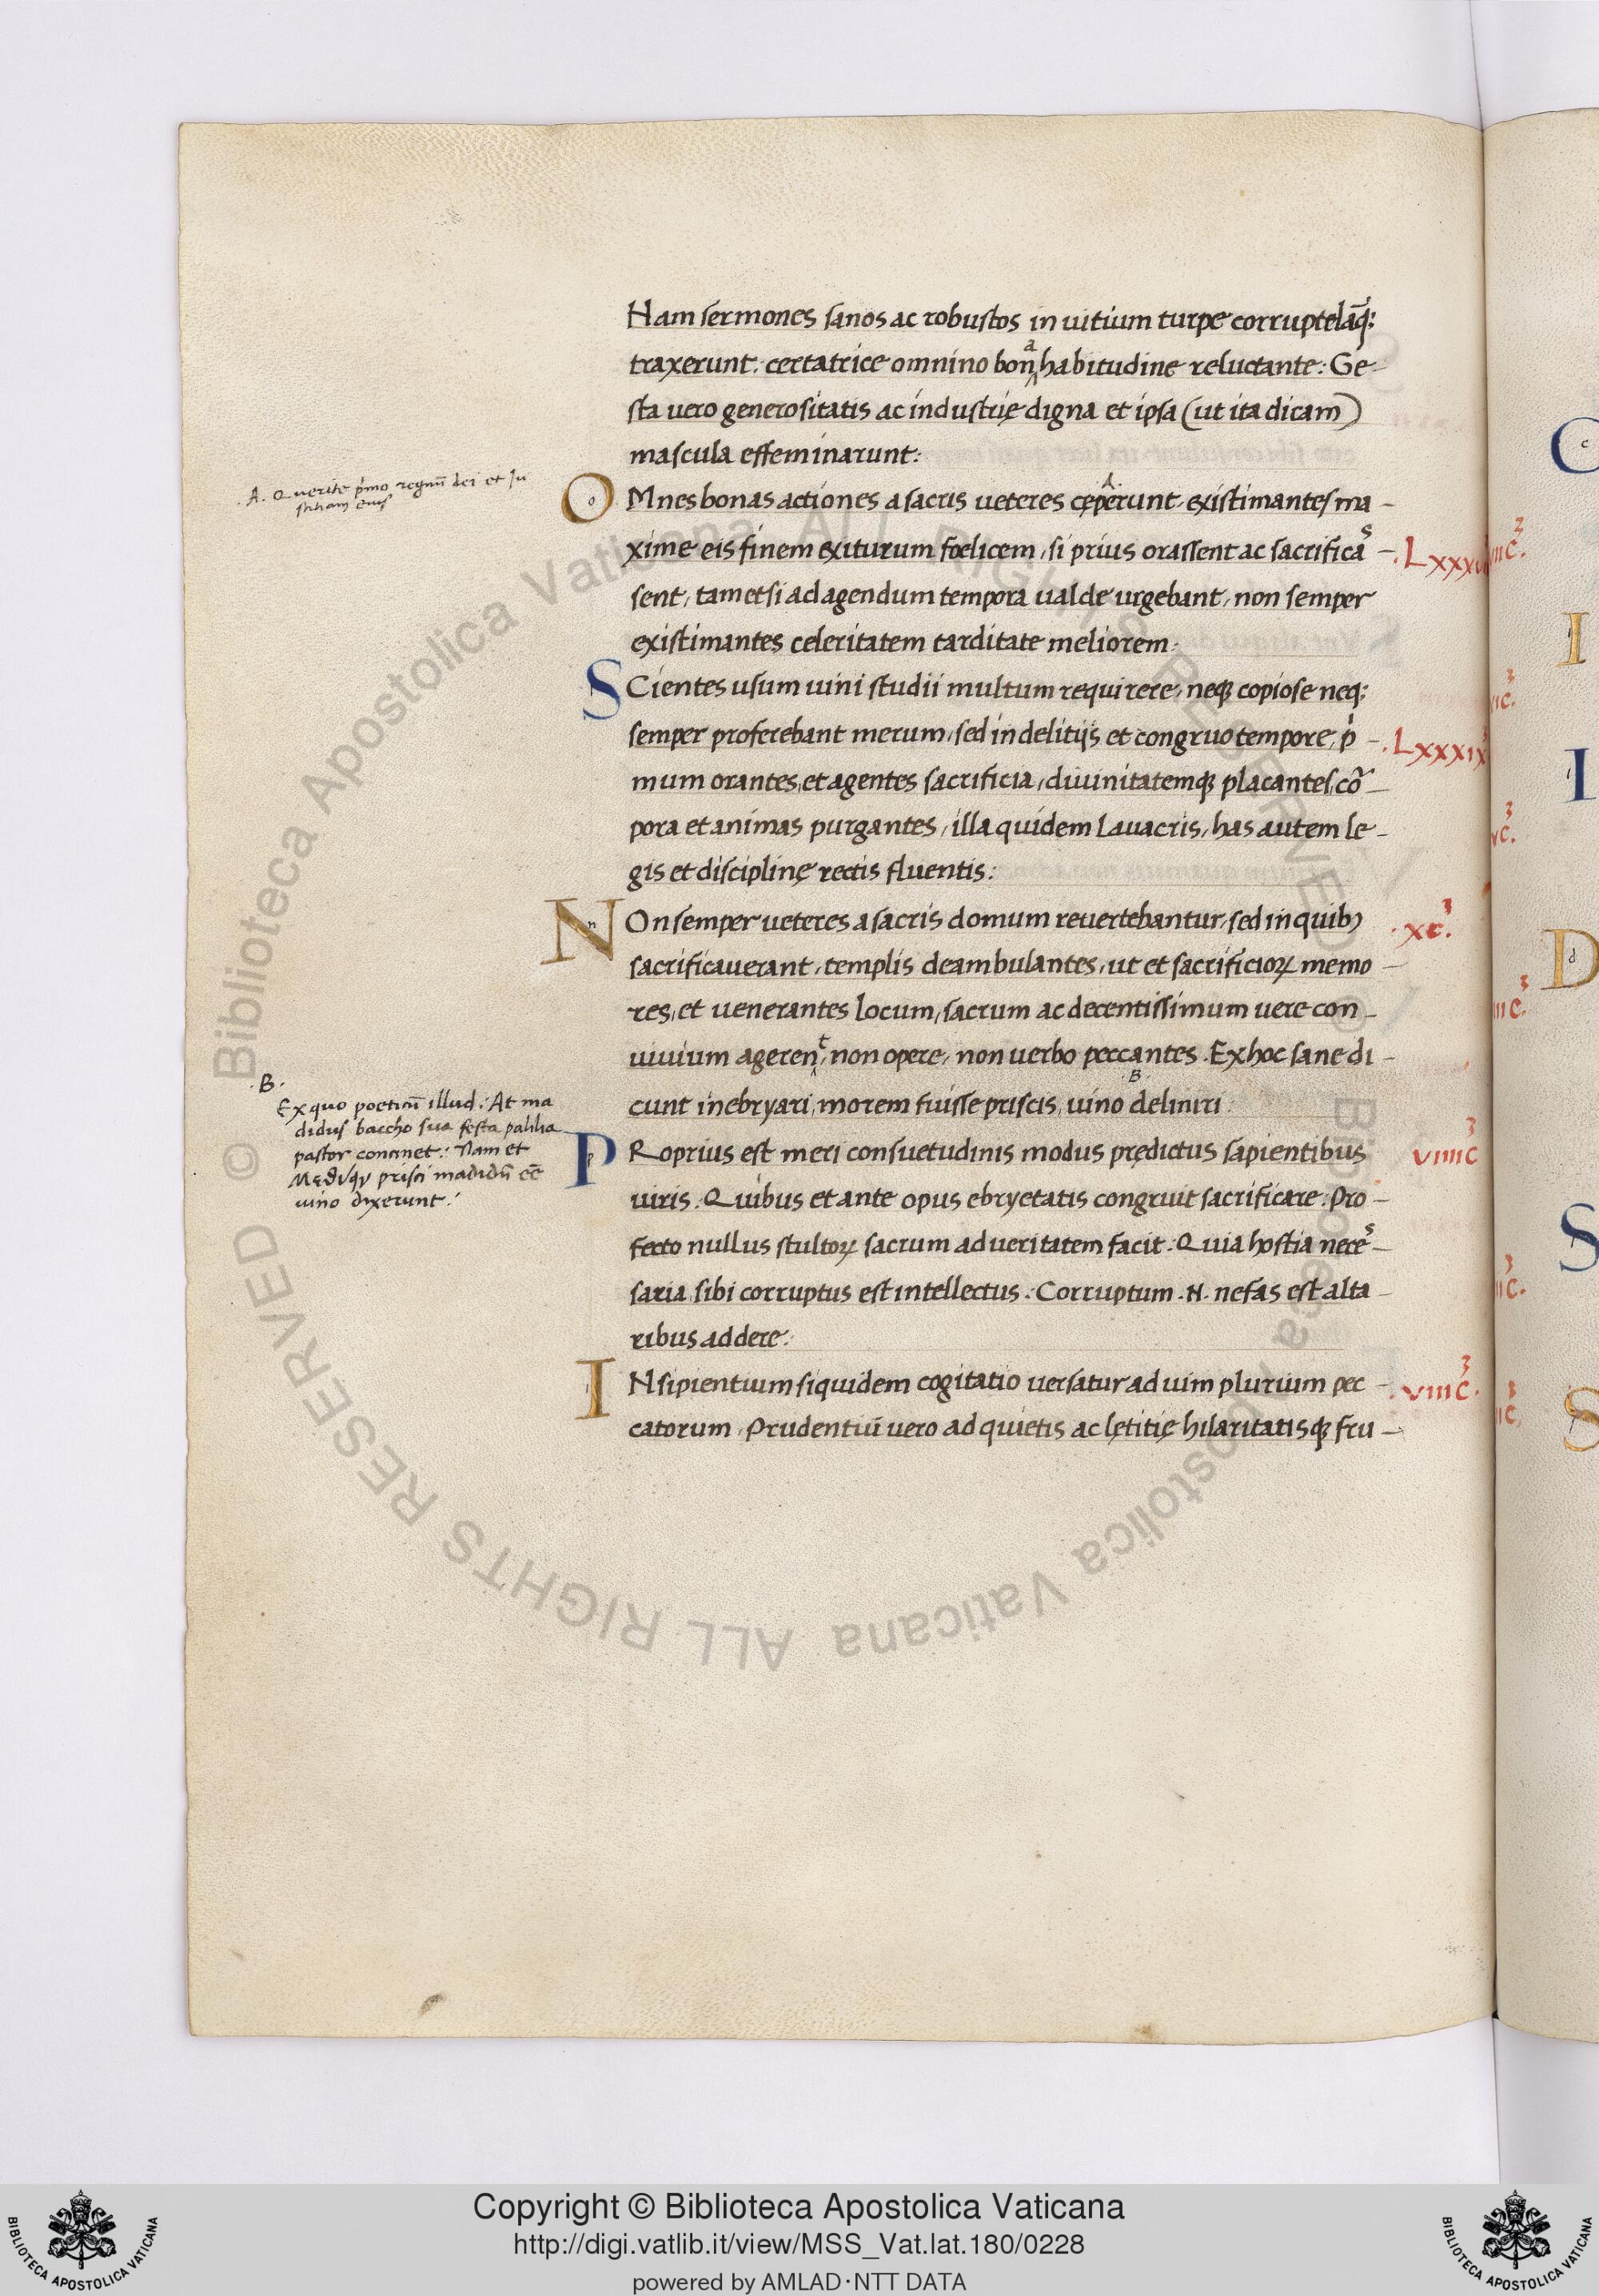 Nam sermones sanos ac robustos in uitium turpe corruptelāq;
traxerunt: certatrice omnino bona habitudine reluctante: Ge-
sta uero generositatis ac industrię digna et ipsa (ut ita dicam)
mascula effeminarunt:
.A. Querite pͥmo regnū dei et Iu
stitiam eius
OMnes bonas actiones a sacris ueteres cęperunt, existimantes ma-
.A.
xime eis finem exiturum foelicem, si prius orassent ac sacrificas-
.Lxxxviii
sent, tametsi ad agendum tempora ualde urgebant, non semper
existimantes celeritatem tarditate meliorem.
SCientes usum uini studii multum requirere, neq; copiose neq;
semper proferebant merum, sed in delitijs et congruo tempore, pͥ-
.Lxxxix
mum orantes, et agentes sacrificia, diuinitatemq; placantes, cor-
pora et animas purgantes, illa quidem Lauacris, has autem le-
gis et disciplinę rectis fluentis:
NOn semper ueteres a sacris domum reuertebantur, sed in quibꝫ
.xc.³
sacrificauerant, templis deambulantes, ut et sacrificioꝝ memo-
res, et uenerantes locum, sacrum ac decentissimum uere con-
uiuium agerent, non opere, non uerbo peccantes. Ex hoc sane di-
cunt inebryari, morem fuisse priscis, uino deliniri:
.B.
.B.
Ex quo poeticū illud: At ma
didus baccho sua festa palilia
pastor concinet: Nam et
prisci madidū eē
uino dixerunt:
PRoprius est meri consuetudinis modus prędictus sapientibus
viiiic³
uiris. Quibus et ante opus ebryetatis congruit sacrificare: Pro-
fecto nullus stultoꝝ sacrum ad ueritatem facit: Quia hostia neces-
saria sibi corruptus est intellectus: Corruptum .N. nefas est alta-
ribus addere:
INsipientium siquidem cogitatio uersatur ad uim plurium pec-
.viiic³.
catorum. Prudentiū uero ad quietis ac lętitię hilaritatisq; fru-
Copyright © Biblioteca Apostolica Vaticana
http://digi.vatlib.it/view/MSS_Vat.lat.180/0228
powered by AMLAD·NTT DATA
BIBLIOTECA APOSTOLICA VATICANA
BIBLIOTECA APOSTOLICA VATICANA
© Biblioteca Apostolica Vaticana ALL RIGHTS RESERVED © Biblioteca Apostolica Vaticana ALL RIGHTS RESERVED